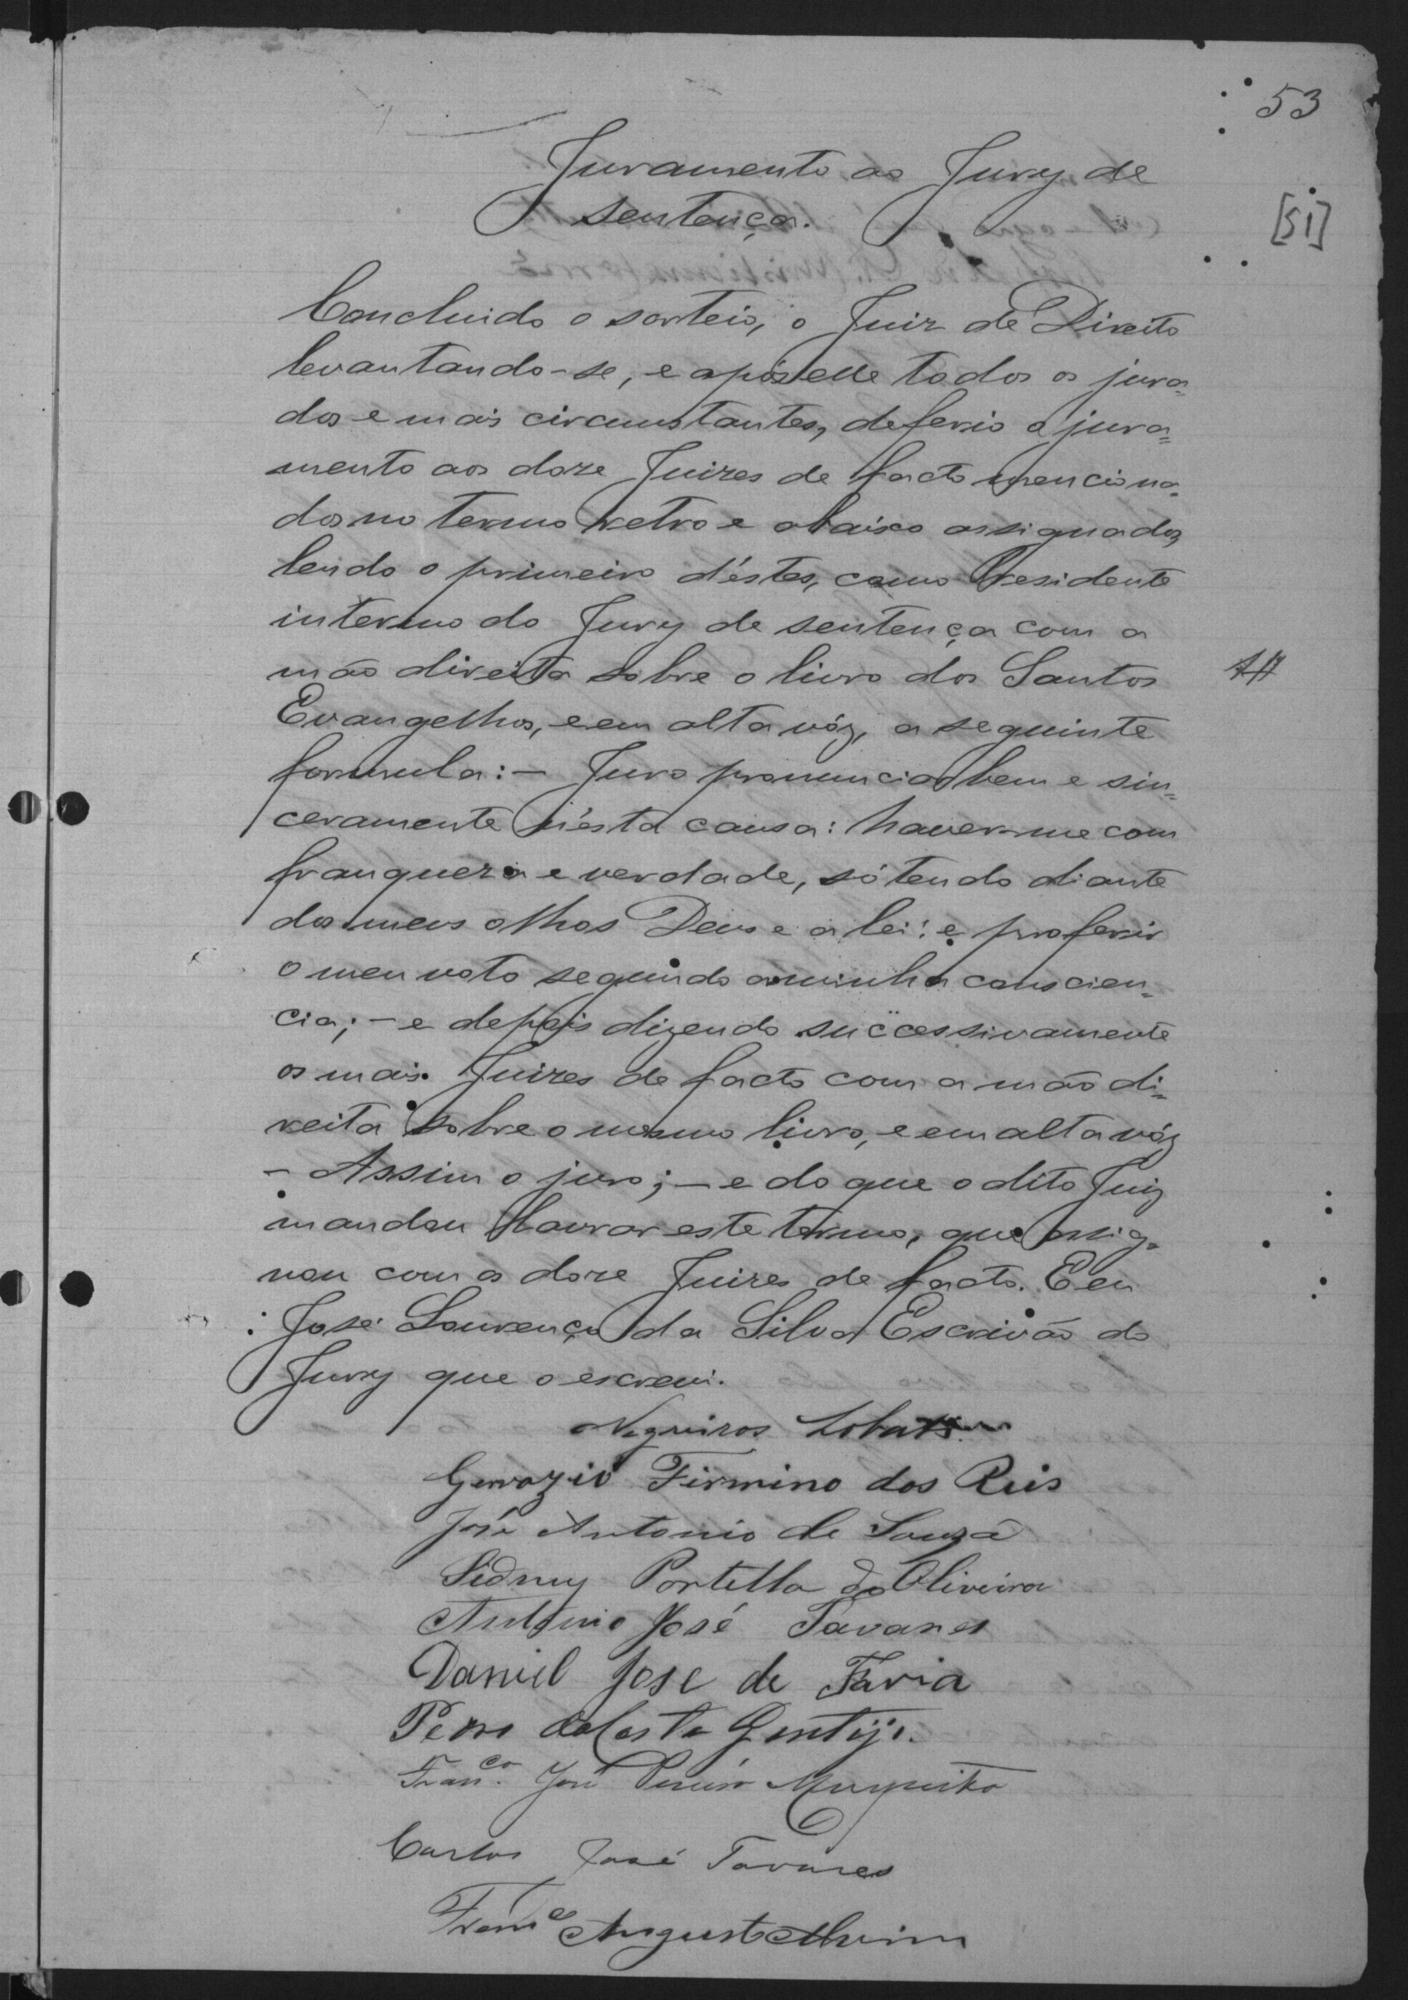 53
[51]
Juramento ao Jury de
sentença.
Concluido o sorteio, o Juiz de Direito
levantando-se, e após elle todos os jura=
dos e mais circumstantes, deferio o jura=
mento aos doze Juizes de facto menciona=
dos no termo retro e abaixo assignados,
lendo o primeiro d'éstes, como Presidente
interino do Jury de sentença com a
mão direita sobre o livro dos Santos
Evangelhos, e em alta vóz, a seguinte
formula: — Juro pronunciar bem e sin=
ceramente n'ésta causa: haver-me com
franqueza e verdade, só tendo diante
dos meus olhos Deus e a lei: e proferir
o meu voto segundo a minha conscien=
cia; — e depois dizendo successivamente
os mais Juizes de facto com a mão di=
reita sobre o mesmo livro, e em alta vóz
— Assim o juro; — e do que o dito Juiz
mandou lavrar este termo, que assig=
nou com os doze Juizes de facto. E eu
José Lourenço da Silva Escrivão do
Jury que o escrevi.
Gervazio Firmino dos Reis
José Antonio de Souza
Sidney Portella de Oliveira
Antonio José Tavares
Daniel Jose de Faria
Pedro da Costa
Fran.co José Pereira
Carlos José Tavares
Augusto